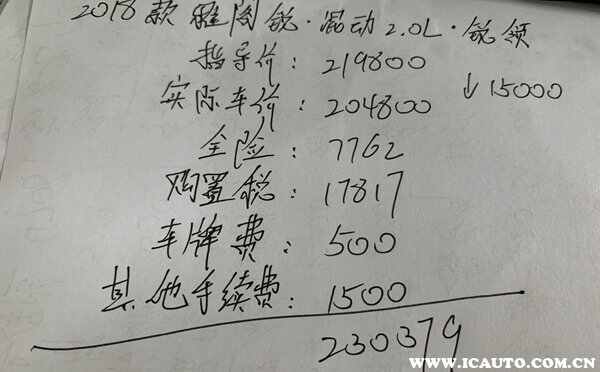 2018款 雅阁 锐·混动 2.0L·锐领
指导价: 219800
↓15000
实际车价: 204800
全险: 7762
购置税: 17817
车牌费: 500
其他手续费: 1500
230379
爱卡汽车
WWW.ICAUTO.COM.CN